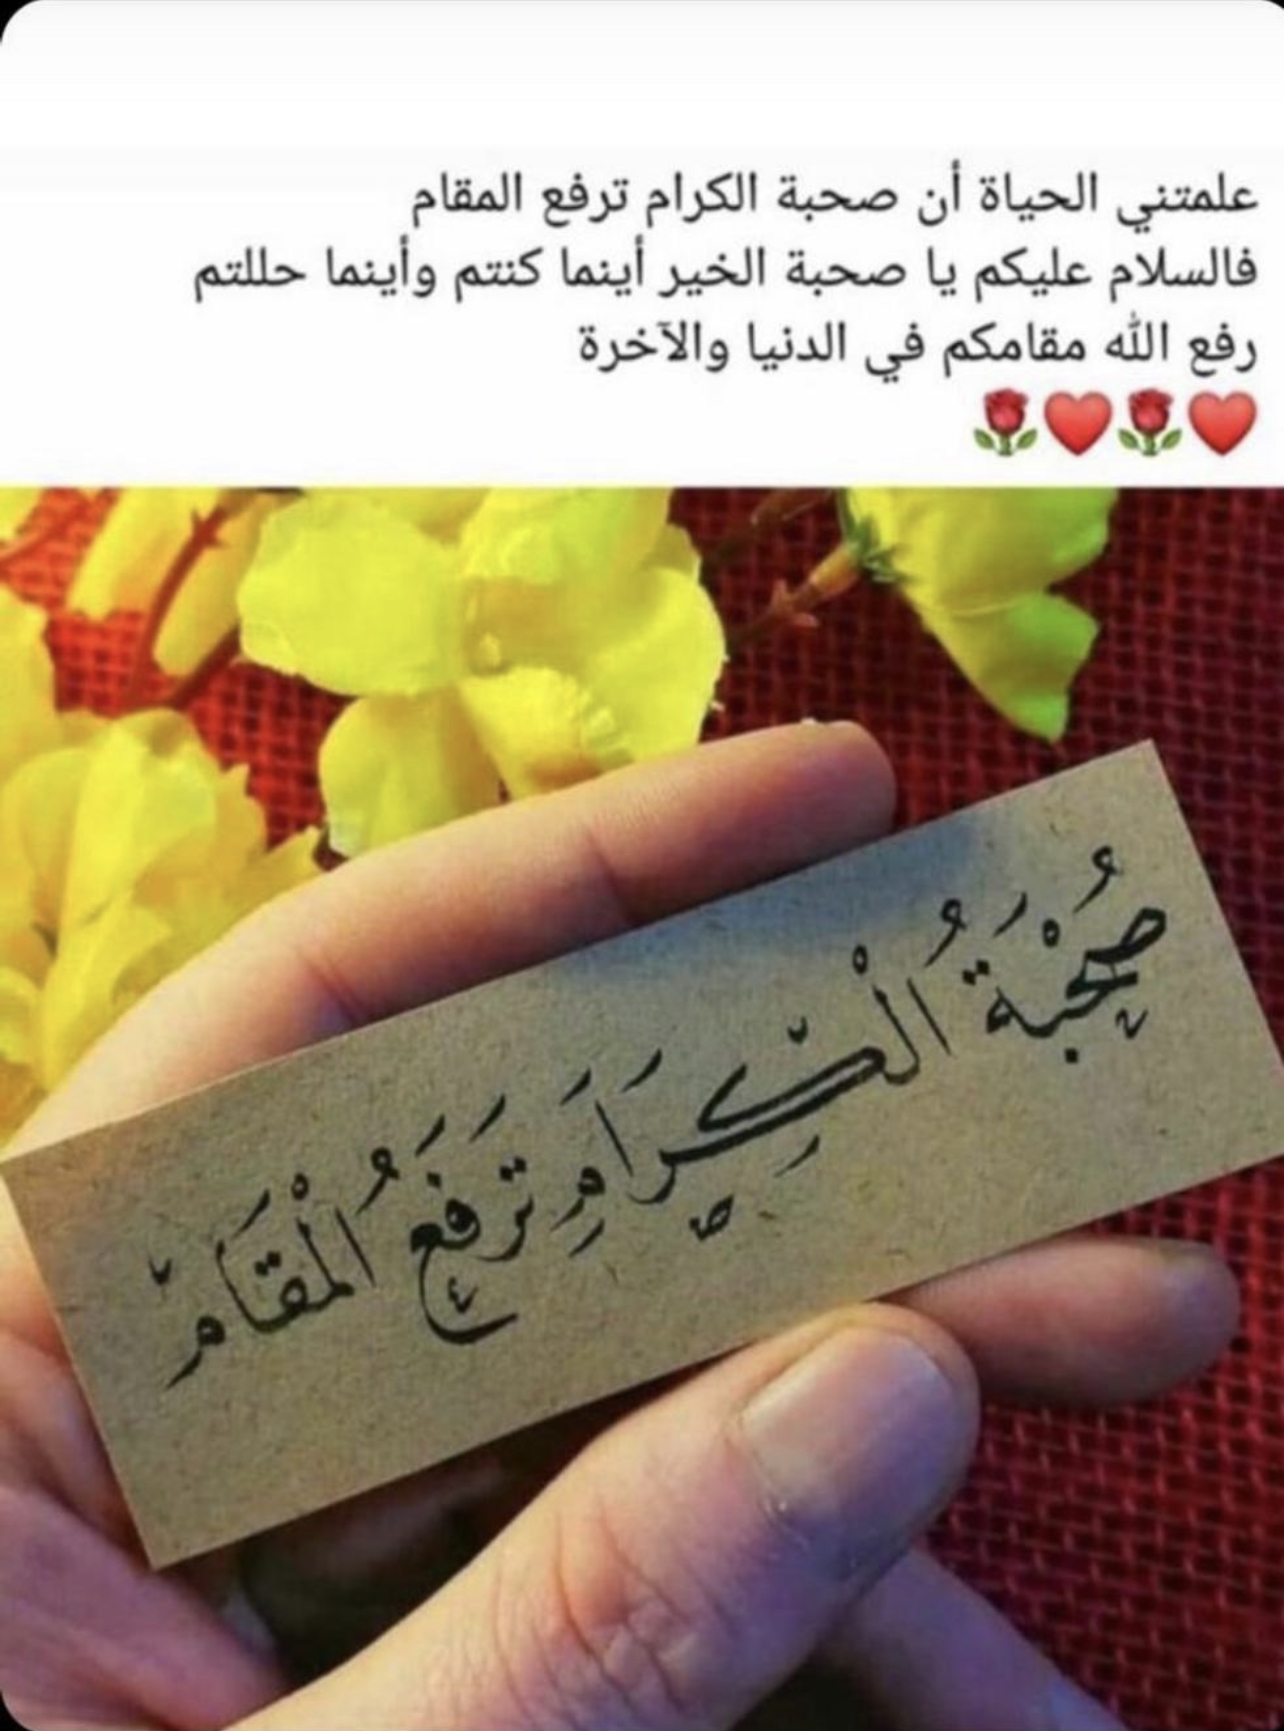 علمتني الحياة أن صحبة الكرام ترفع المقام
فالسلام عليكم يا صحبة الخير أينما كنتم وأينما حللتم
رفع الله مقامكم في الدنيا والآخرة
❤️🌹❤️🌹
صُحْبَةُ الْكِرَامِ تَرفَعُ الْمَقَام